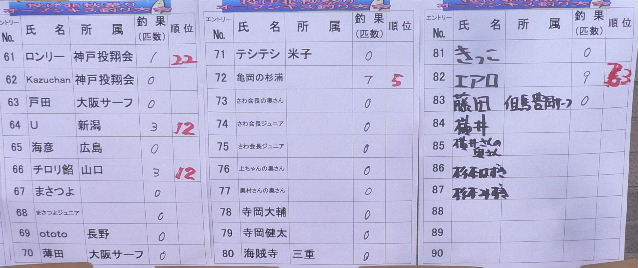 エントリー No. 氏 名 所 属 釣 果 (匹数) 順 位
61 ロンリー 神戸投翔会 1 22
62 Kazuchan 神戸投翔会 0
63 戸田 大阪サーフ 0
64 U 新潟 3 12
65 海彦 広島 0
66 チロリ餡 山口 3 12
67 まさつよ 0
68 まさつよジュニア 0
69 ototo 長野 0
70 薄田 大阪サーフ 0
エントリー No. 氏 名 所 属 釣 果 (匹数) 順 位
71 テシテシ 米子 0
72 亀岡の杉浦 7 5
73 さわ会長の奥さん 0
74 さわ会長ジュニア 0
75 さわ会長ジュニア 0
76 上ちゃんの奥さん 0
77 奥村さんの奥さん 0
78 寺岡大輔 0
79 寺岡健太 0
80 海賊寺 三重 0
エントリー No. 氏 名 所 属 釣 果 (匹数) 順 位
81 きっこ 0
82 エアロ 9 3
83 藤田 0
84 横井
85 横井さんの奥さん
86
87
88
89
90